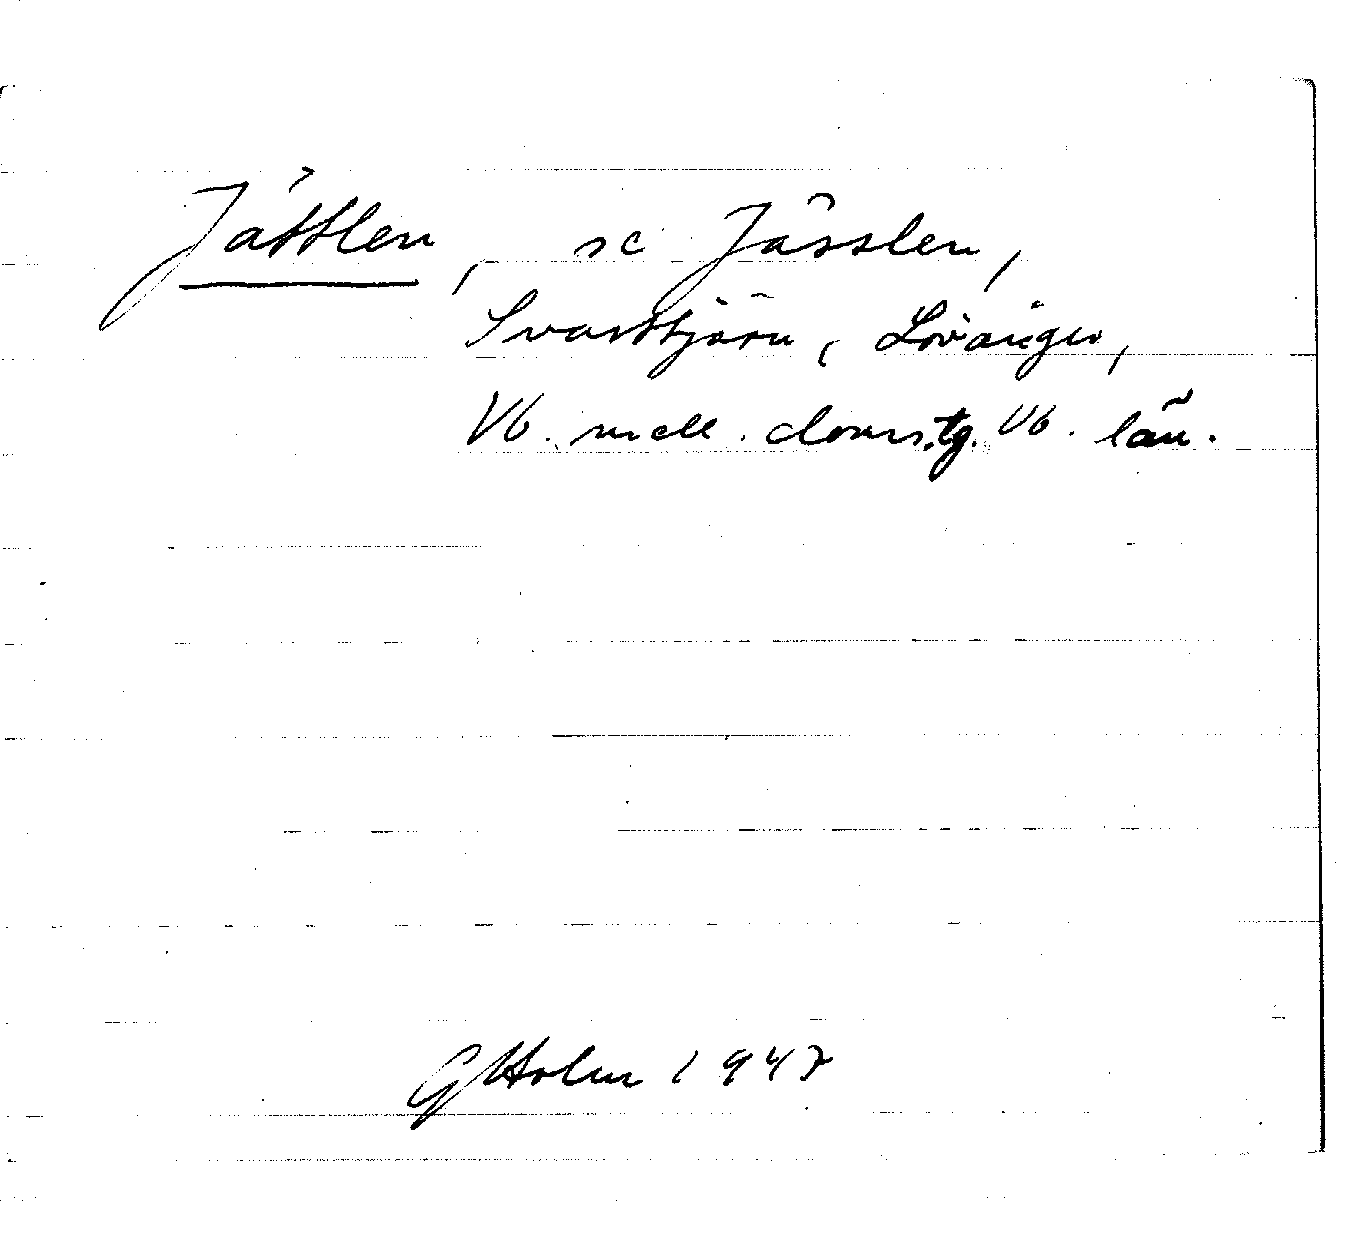 Jättlen, se Jässlen,
Svarttjärn, Lövånger,
Vb. mell. doms.tg. Vb. län.
GHolm 1947